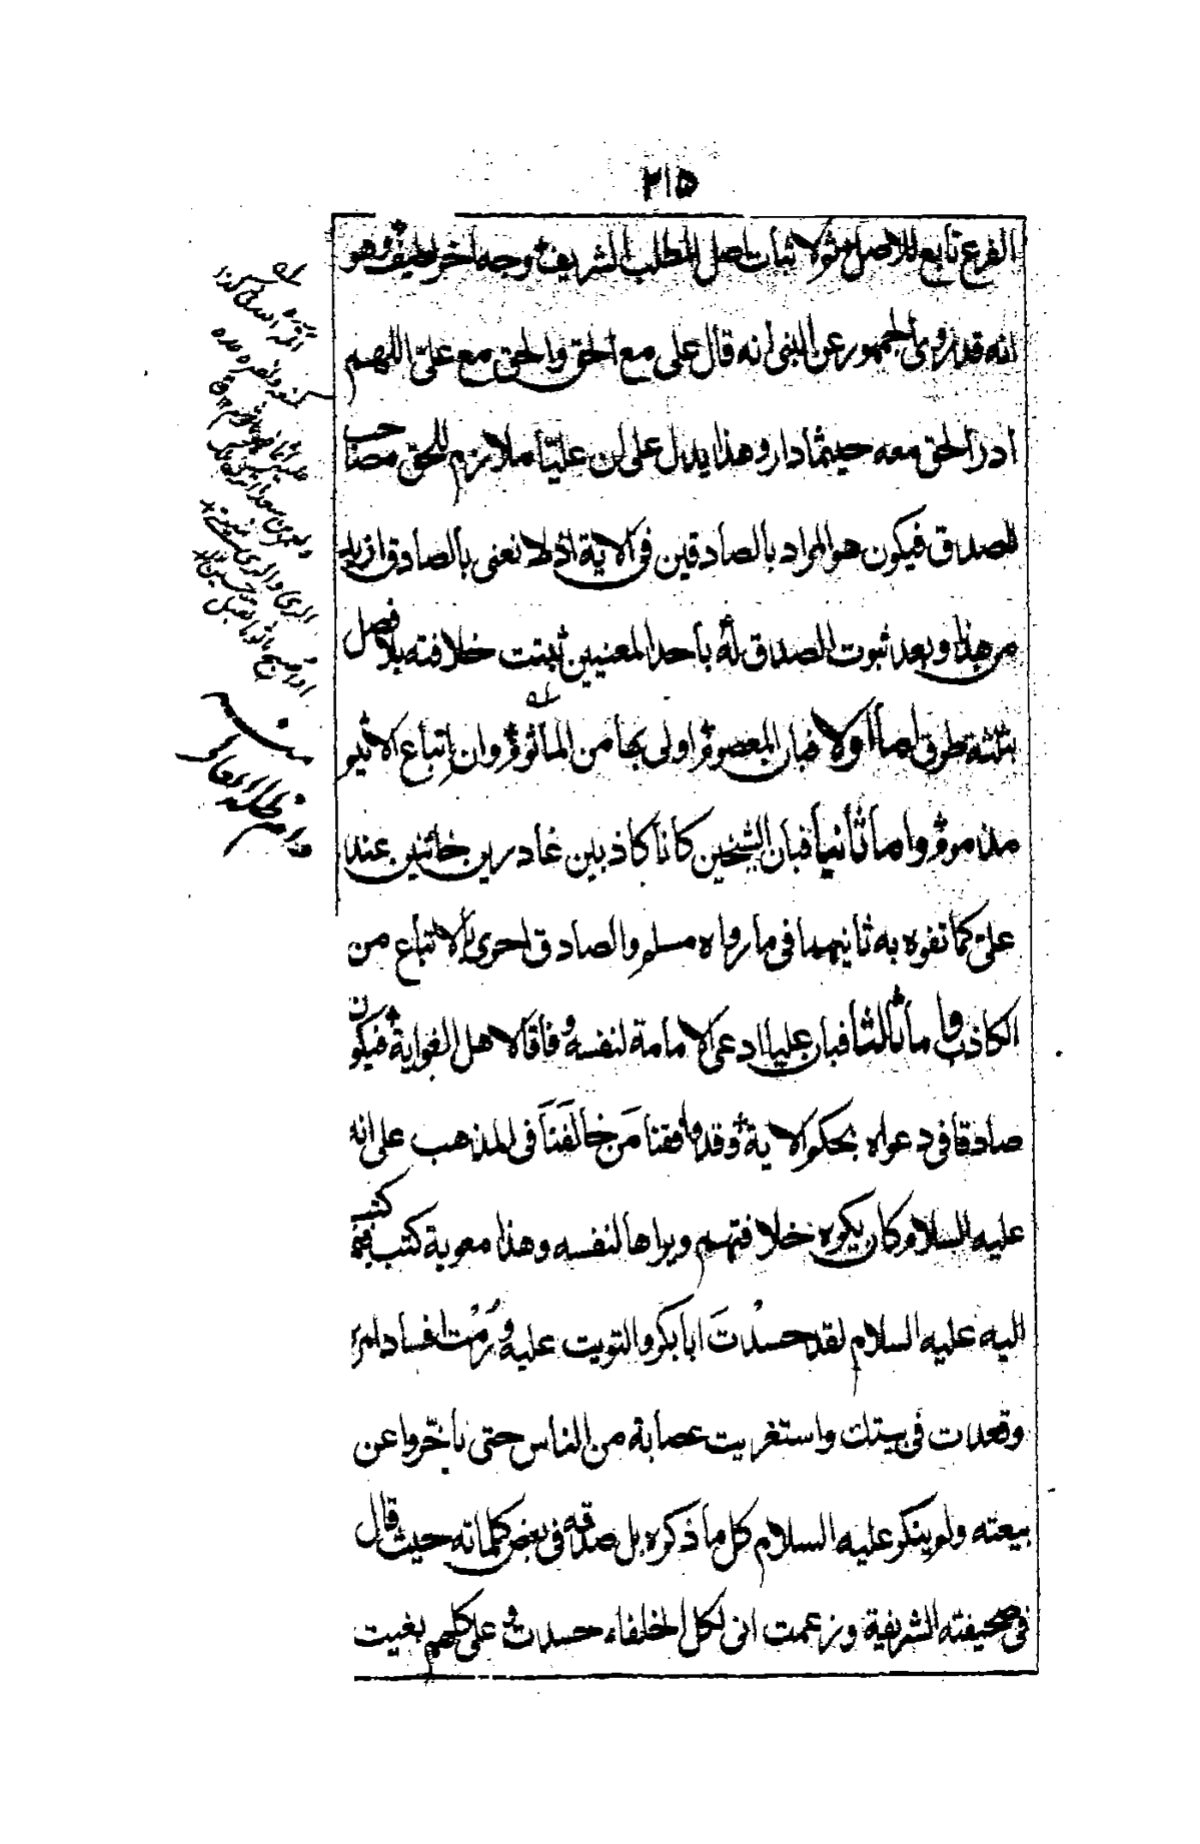 ٢١٥
الفرع تابع للاصل ولاثبات اصل المطلب الشريف وجه اخر لطيف وهو
انه قد روى الجمهور عن النبى انه قال على مع الحق والحق مع على اللهم
ادر الحق معه حيثما دار وهذا يدل على ان عليّاً ملازم للحق مصاحب
للصدق فيكون هو المراد بالصادقين فى الاية اذ لا نعنى بالصادق ازيد
من هذا وبعد ثبوت الصدق له باحد المعنيين ثبتت خلافته بلا فصل
بثلثة طرق اما اولا فبان المعصوم اولى بها من الماثوم وان اتباع الاثيم
مذموم واما ثانيا فبان الشيخين كانا كاذبين غادرين خائنين عند
على كما تفوه به ثانيهما فى ما رواه مسلم والصادق احرى بالاتباع من
الكاذب واما ثالثا فبان عليا ادعى الامامة لنفسه وفاقا لاهل الغواية فيكون
صادقا فى دعواه بحكم الاية وقد وافقنا مَن خالَفَنا فى المذهب على انه
عليه السلام كان يكره خلافتهم ويراها لنفسه وهذا معوية كتب فيما كتب
اليه عليه السلام لقد حسدْتَ ابا بكر والتويت عليه ورُمْت افساد امره
وقعدت فى بيتك واستغويت عصابة من الناس حتى تاخّروا عن
بيعته ولم ينكر عليه السلام كل ما ذكره بل صدقه فى بعض كلماته حيث قال
فى صحيفته الشريفة وزعمت انى لكل الخلفاء حسدت وعلى كلهم بغيت
منه
دام ظله العالى